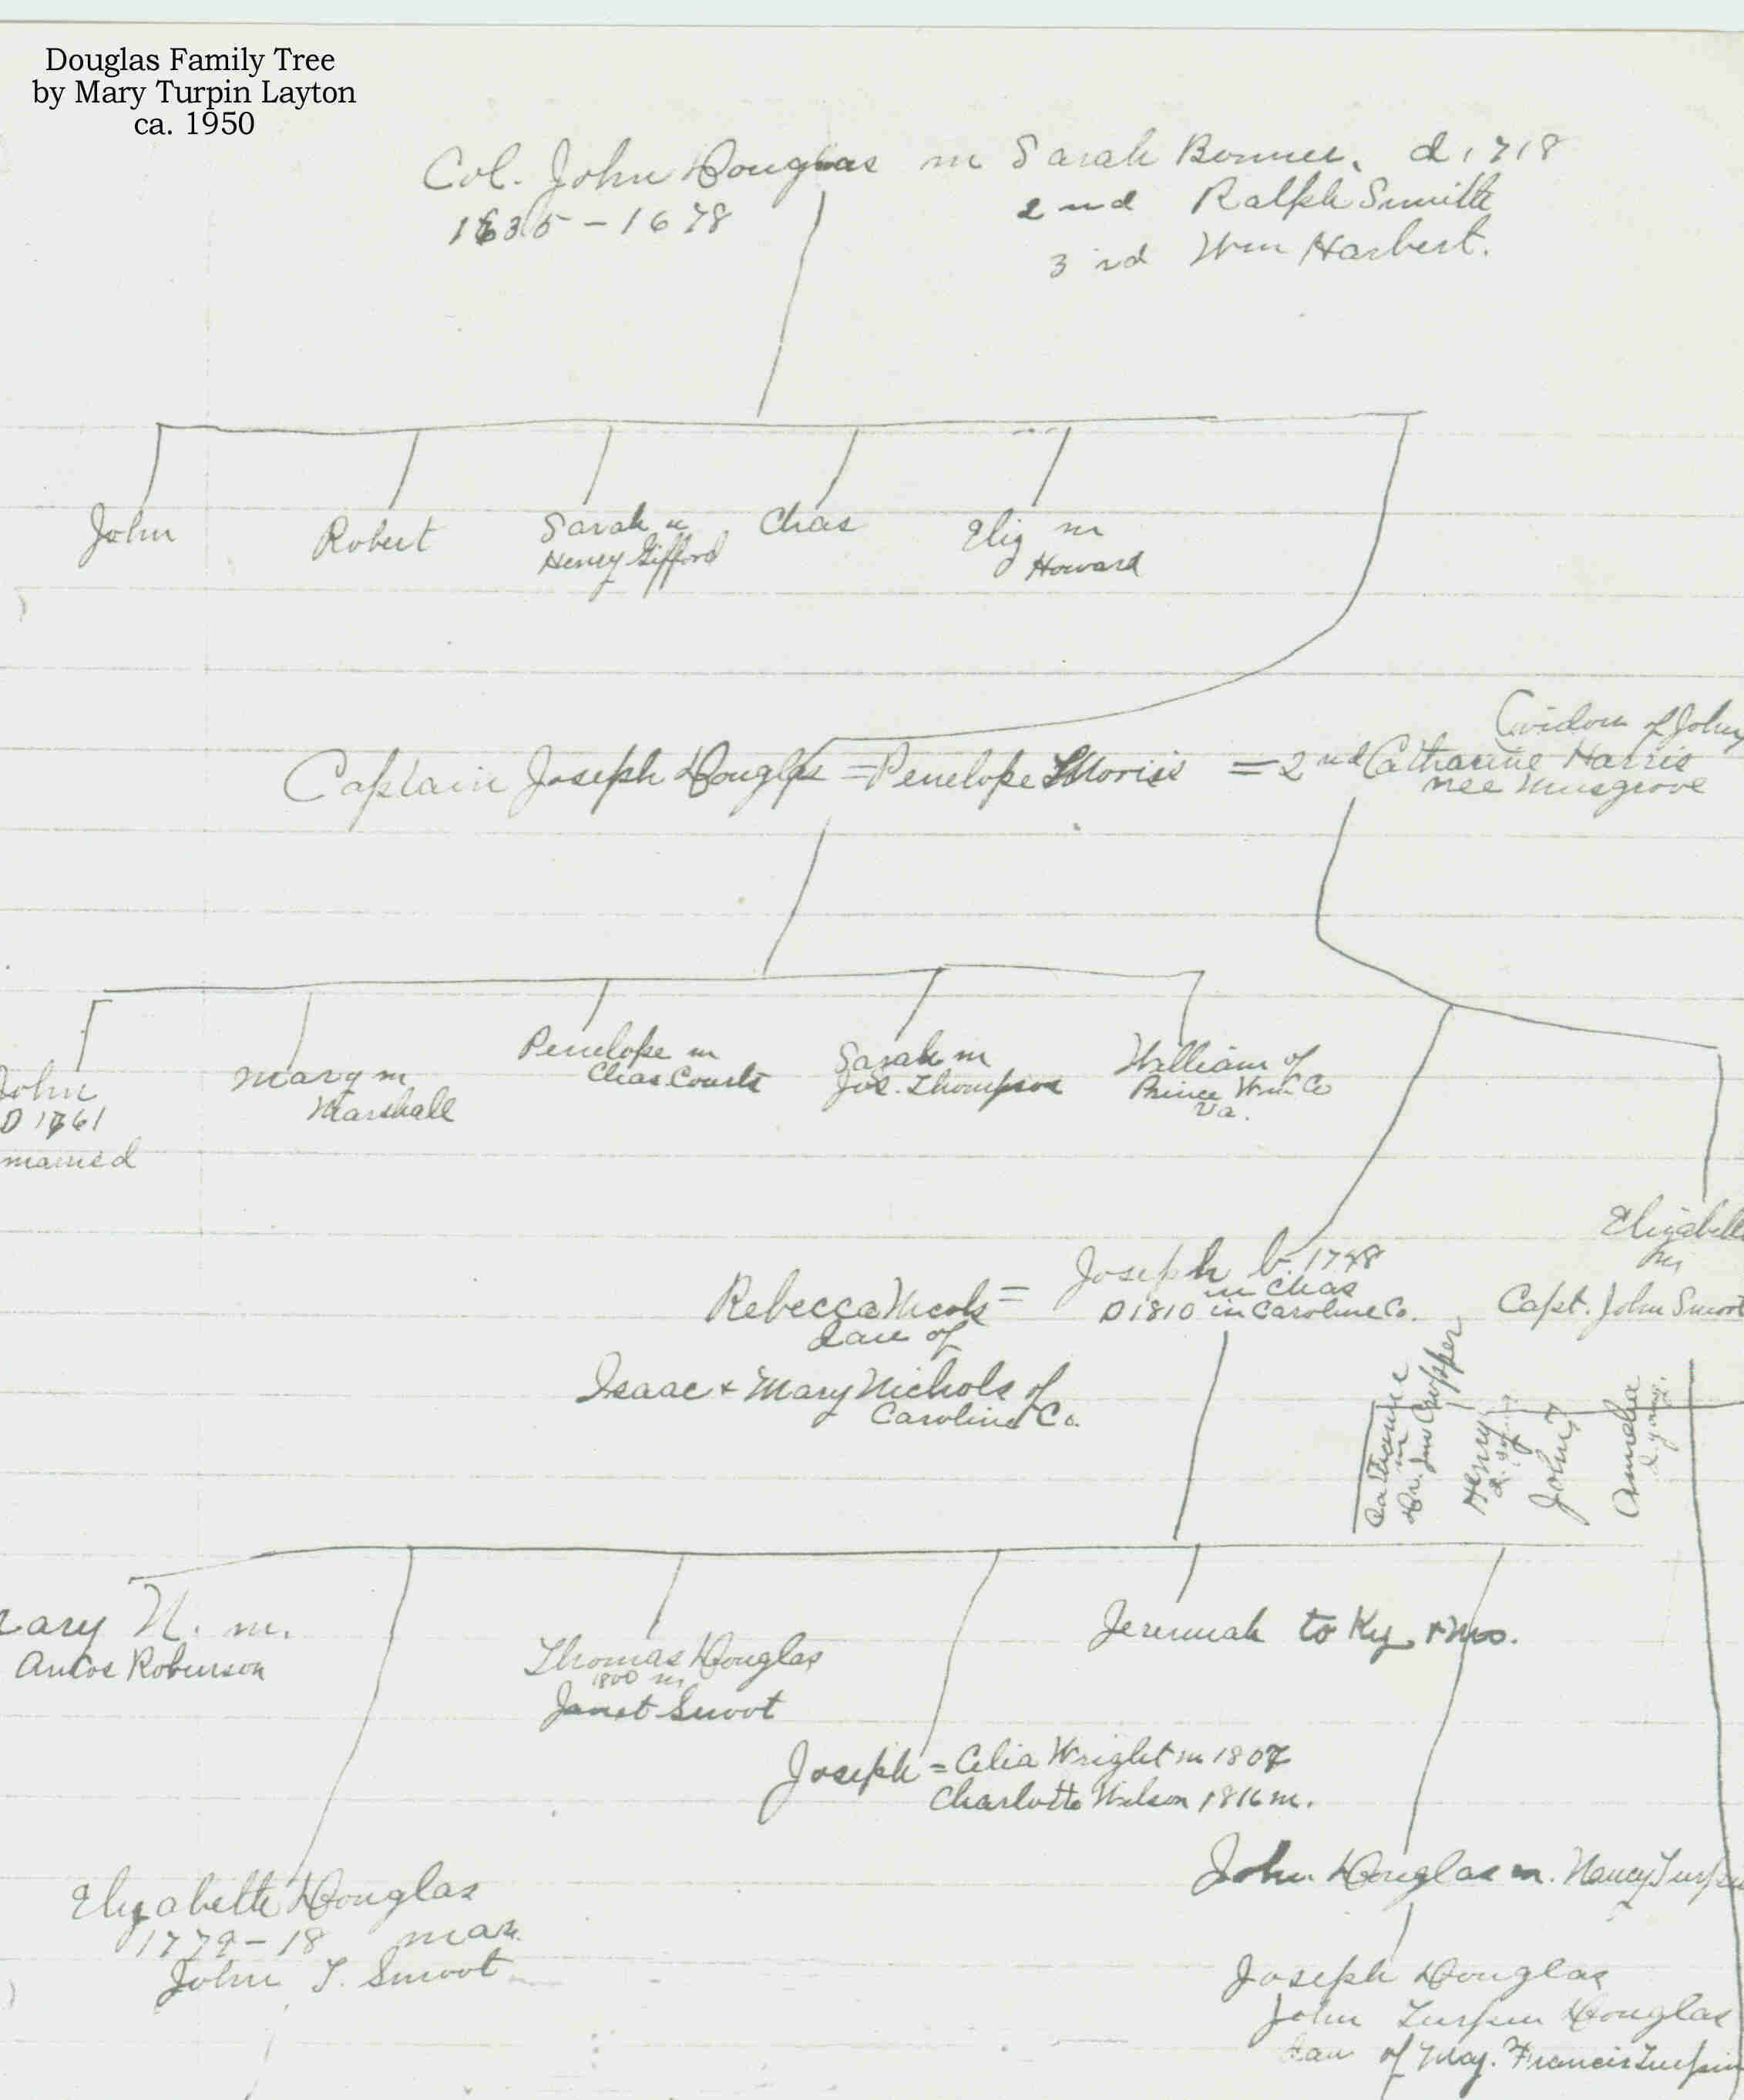 Douglas Family Tree
by Mary Turpin Layton
ca. 1950
Col. John Douglas m Sarah Bonner, d, 1718
1635 - 1678
2nd Ralph Smith
3rd Wm Harbert.
John
Robert
Sarah m
Henry Gifford
Chas
Eliz m
Howard
(widow of John
Captain Joseph Douglas = Penelope Morris = 2nd Catharine Harris
nee Musgrove
John
D 1761
married
Mary m
Marshall
Penelope m
Chas Courts
Sarah m
Jos. Thompson
William of
Prince Wm Co
Va.
Elizabeth
m
Capt. John Smoot
Rebecca Nicols =
dau of
Isaac + Mary Nichols of
Caroline Co.
Joseph b. 1748
in Chas
D 1810 in Caroline Co.
Catharine
m
Dr. Jno Cropper
Henry
d. young
John
Amelia
d. young.
ary N. m.
Robinson
Thomas Douglas
1800 m
Janet Smoot
Jeremiah to Ky + Mo.
Joseph = Celia Wright m 1807
Charlotte Wilson 1816 m.
Elizabeth Douglas
1779 - 18 mar.
John T. Smoot
John Douglas m. Nancy Turpin
Joseph Douglas
John Turpin Douglas
dau of Maj. Francis Turpin